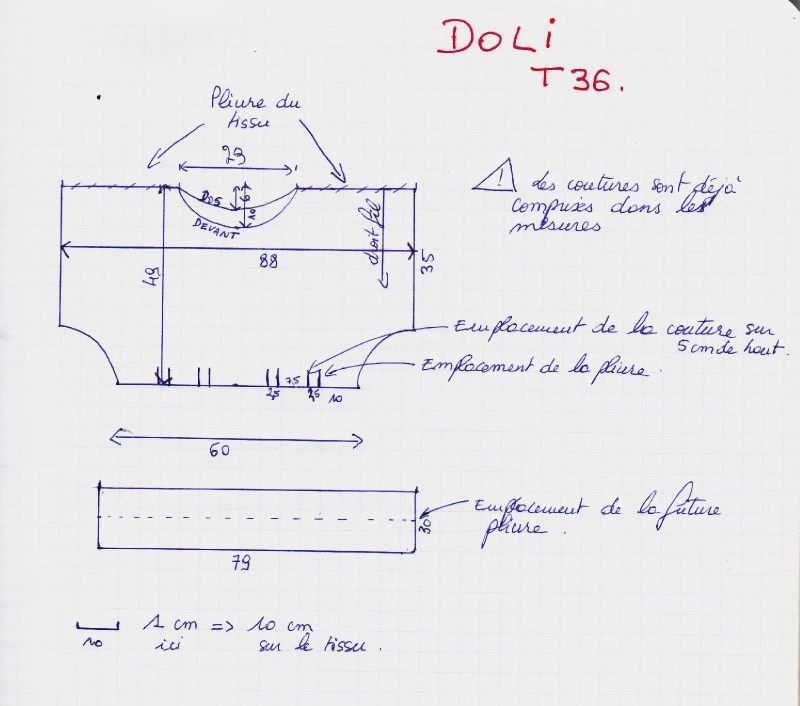 DOLI
T36.
Pliure du
tissu
23
DOS
6
10
DEVANT
droit fil
⚠ Les coutures sont déjà
comprises dans les
mesures
88
49
35
Emplacement de la couture sur
5cm de haut.
Emplacement de la pliure.
2,5
7,5
2,5
10
60
Emplacement de la future
pliure.
30
79
1 cm => 10 cm
10
ici
sur le tissu.